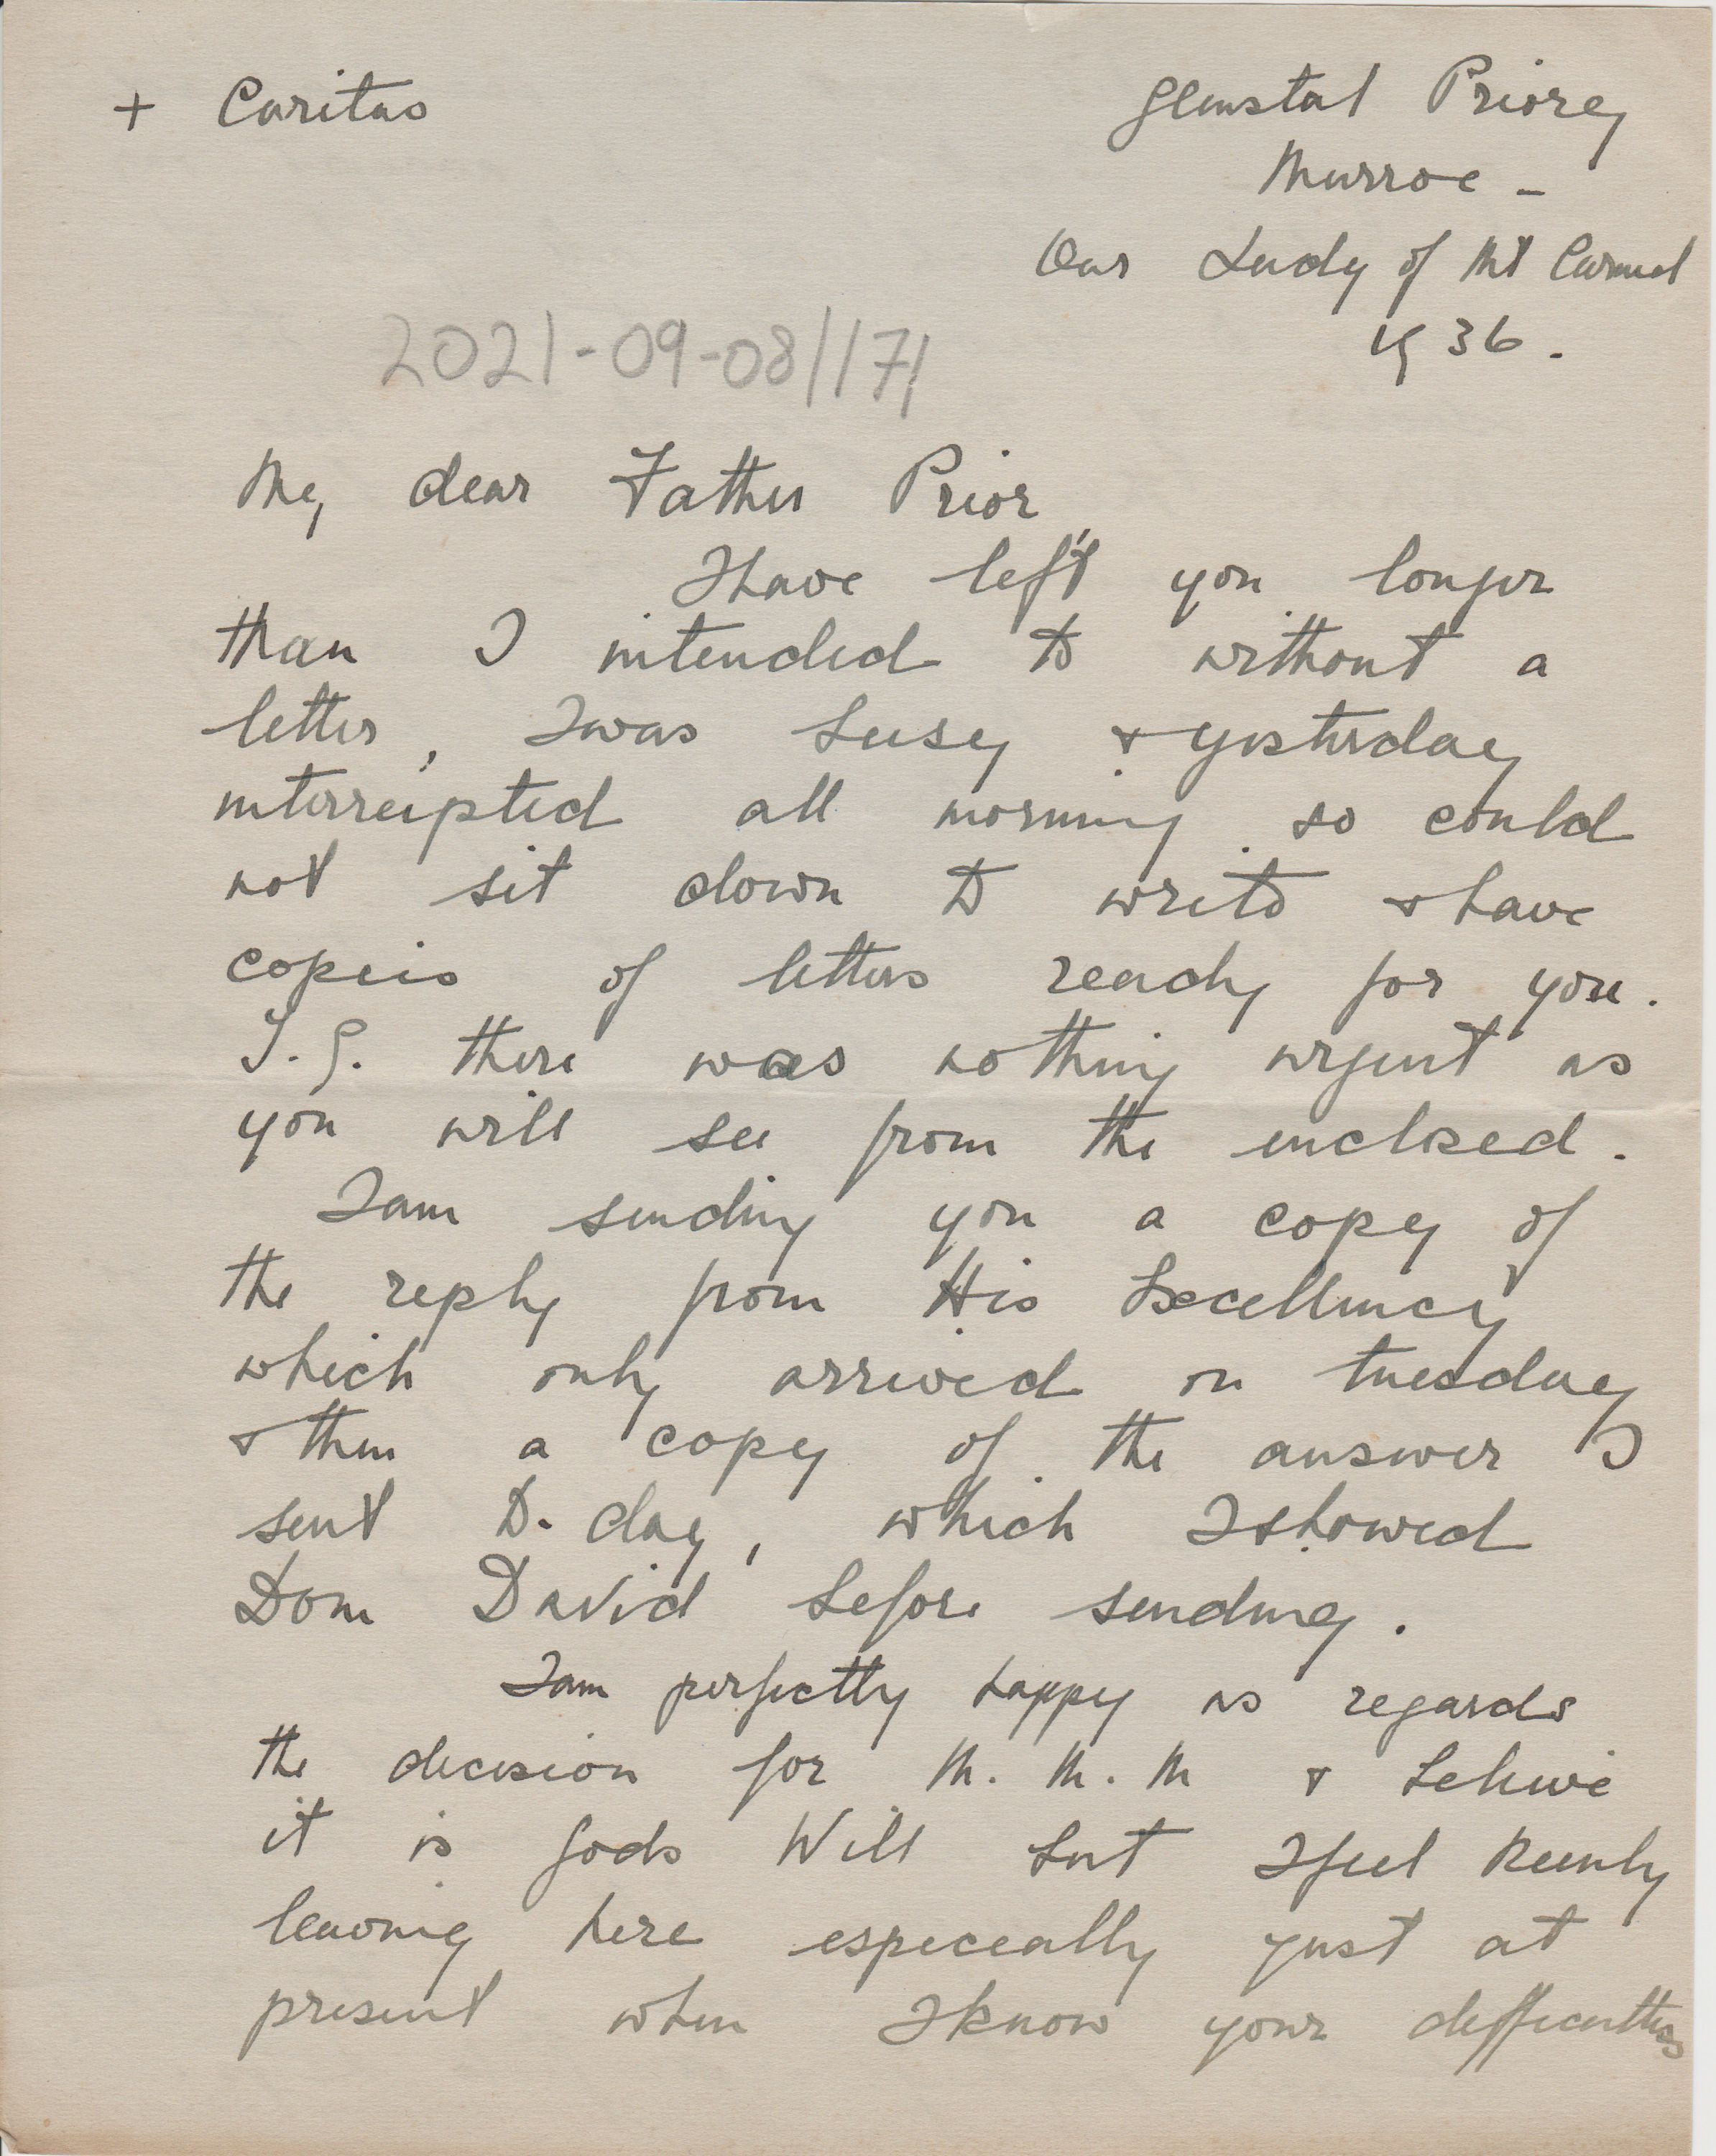 + Caritas
Glenstal Priory
Murroe -
Our Lady of Mt Carmel
1936.
2021-09-08/171
My dear Father Prior
I have left you longer
than I intended to without a
letter, I was busy & yesterday
interrupted all morning so could
not sit down to write & have
copies of letters ready for you.
T.G. there was nothing urgent as
you will see from the enclosed.
I am sending you a copy of
the reply from His Excellency
which only arrived on tuesday
& then a copy of the answer I
sent D. day, which I showed
Dom David before sending.
I am perfectly happy as regards
the decision for M. M. M & believe
it is Gods Will but I feel keenly
leaving here especially just at
present when I know your difficulties